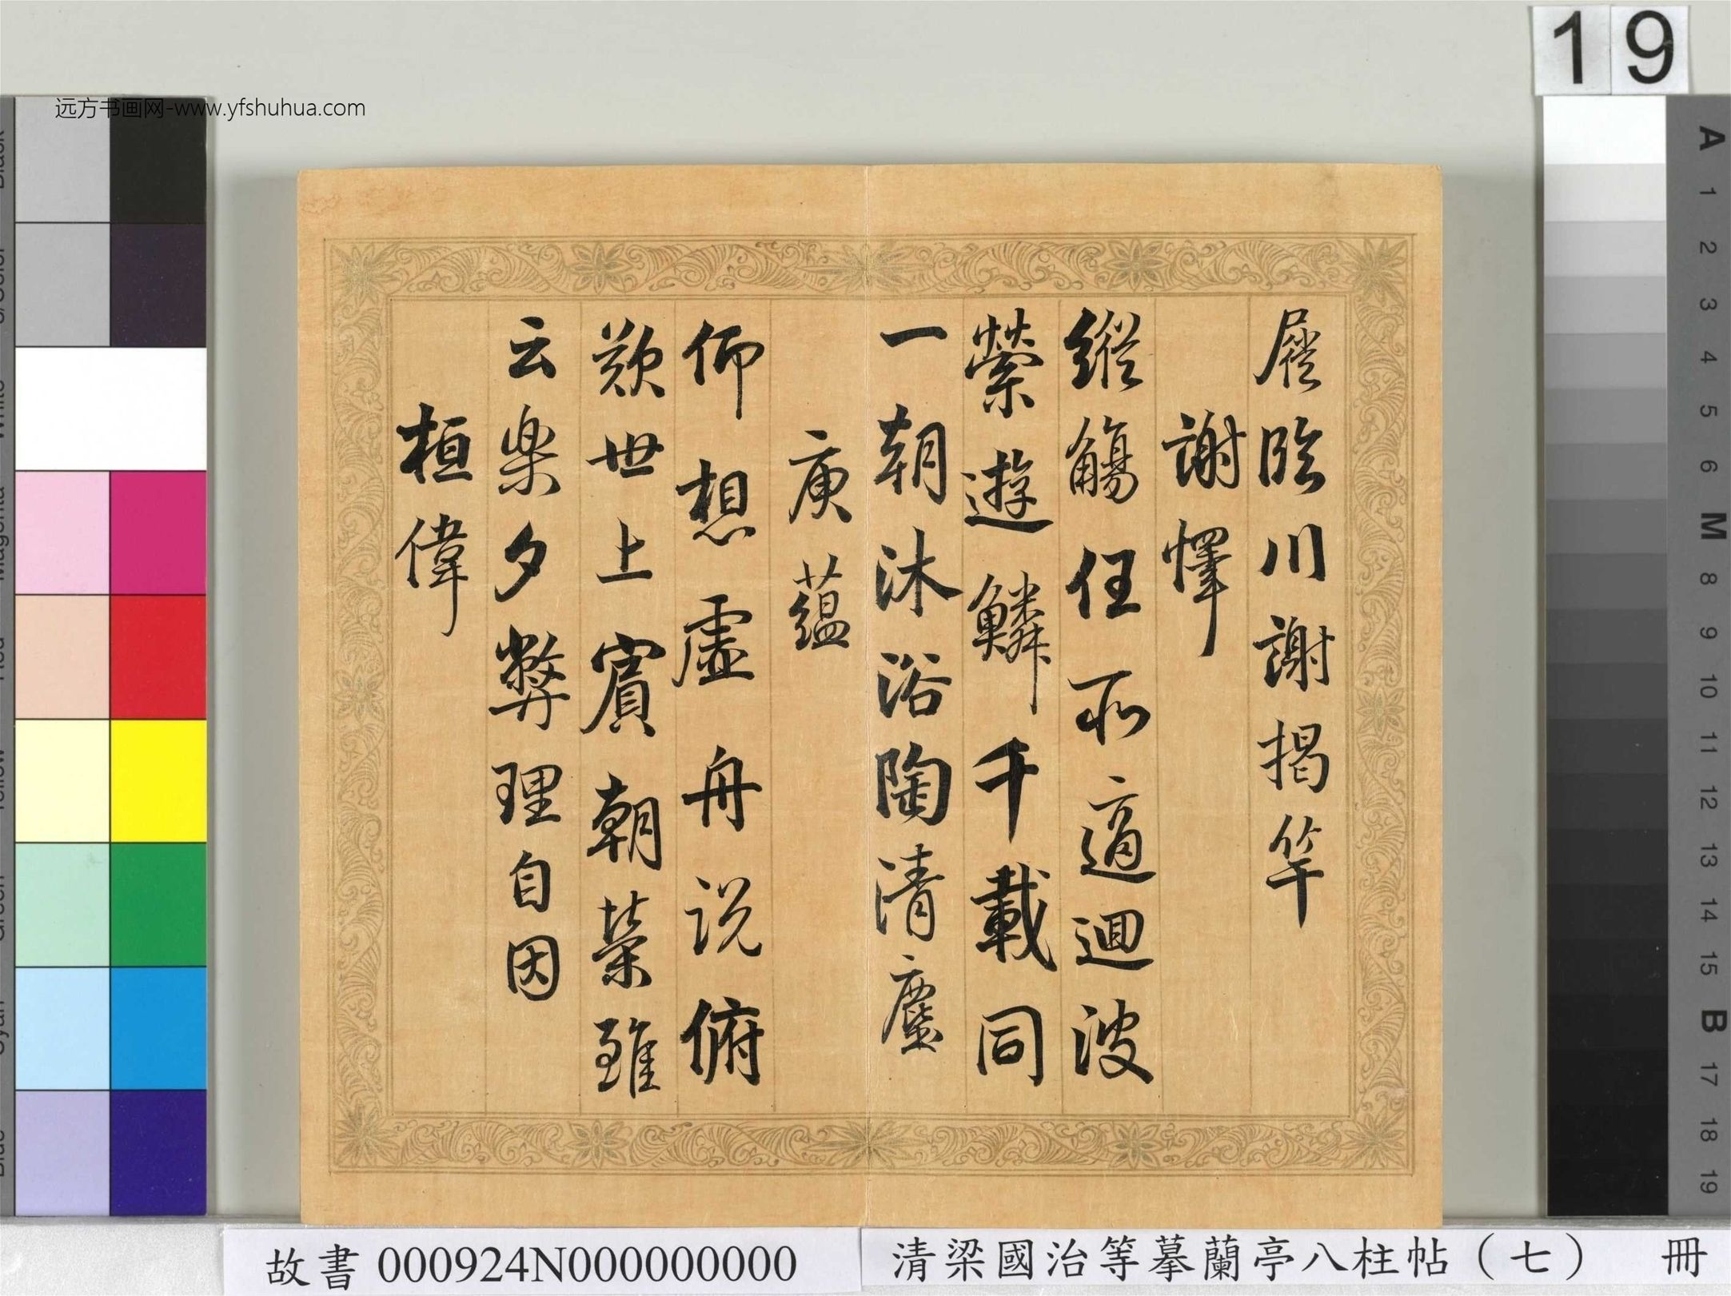 19
远方书画网-www.yfshuhua.com
屐臨川謝揭竿
謝懌
縱觴任所適迴波
縈遊鱗千載同
一朝沐浴陶清塵
庾蘊
仰想虛舟說俯
歎世上賓朝榮雖
云楽夕弊理自因
桓偉
A
1
2
3
4
5
6
M
8
9
10
11
12
13
14
15
B
17
18
19
故書 000924N000000000
清梁國治等摹蘭亭八柱帖（七） 冊